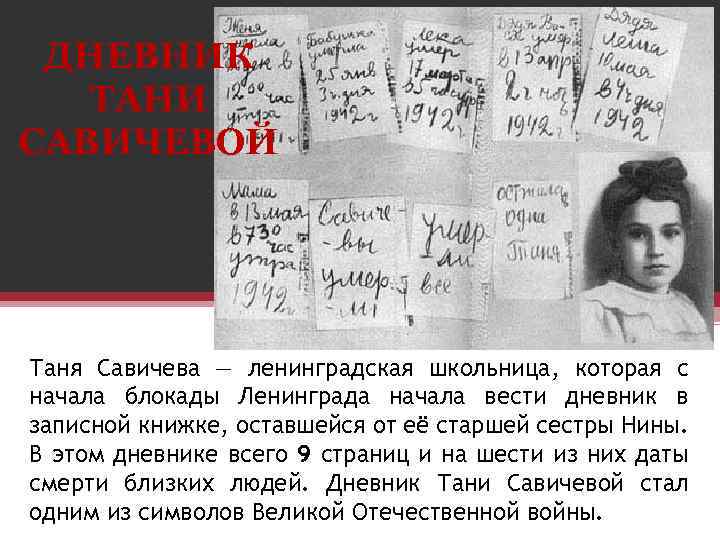 ДНЕВНИК
ТАНИ
САВИЧЕВОЙ
Женя
в
12 00 час
утра
Бабушка
умерла
25 янв
3 ч. дня
1942 г
Лека
умер
17 марта
в 5 час утр
1942 г
Дядя
умер
в 13 апр
2 ч ноч
1942 г
Дядя
Леша
10 мая
в 4 ч дня
1942
Мама
в 13 мая
в 7 30
час
утра
1942 г
Савиче-
-вы
умер-
-ли
умер-
ли
все
осталась
одна
Таня
Таня Савичева — ленинградская школьница, которая с
начала блокады Ленинграда начала вести дневник в
записной книжке, оставшейся от её старшей сестры Нины.
В этом дневнике всего 9 страниц и на шести из них даты
смерти близких людей. Дневник Тани Савичевой стал
одним из символов Великой Отечественной войны.